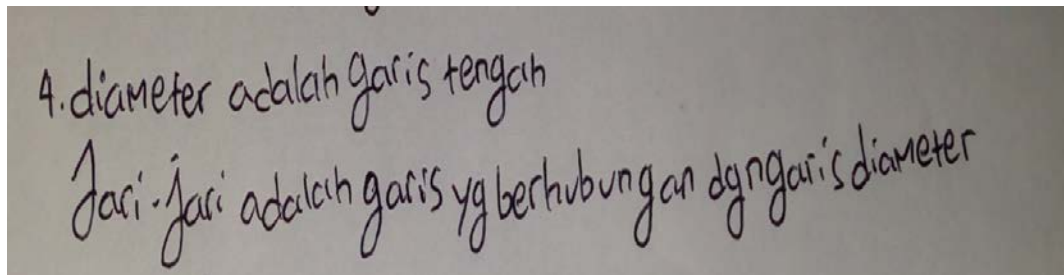 4. diameter adalah garis tengah
Jari-jari adalah garis yg berhubungan dgn garis diameter